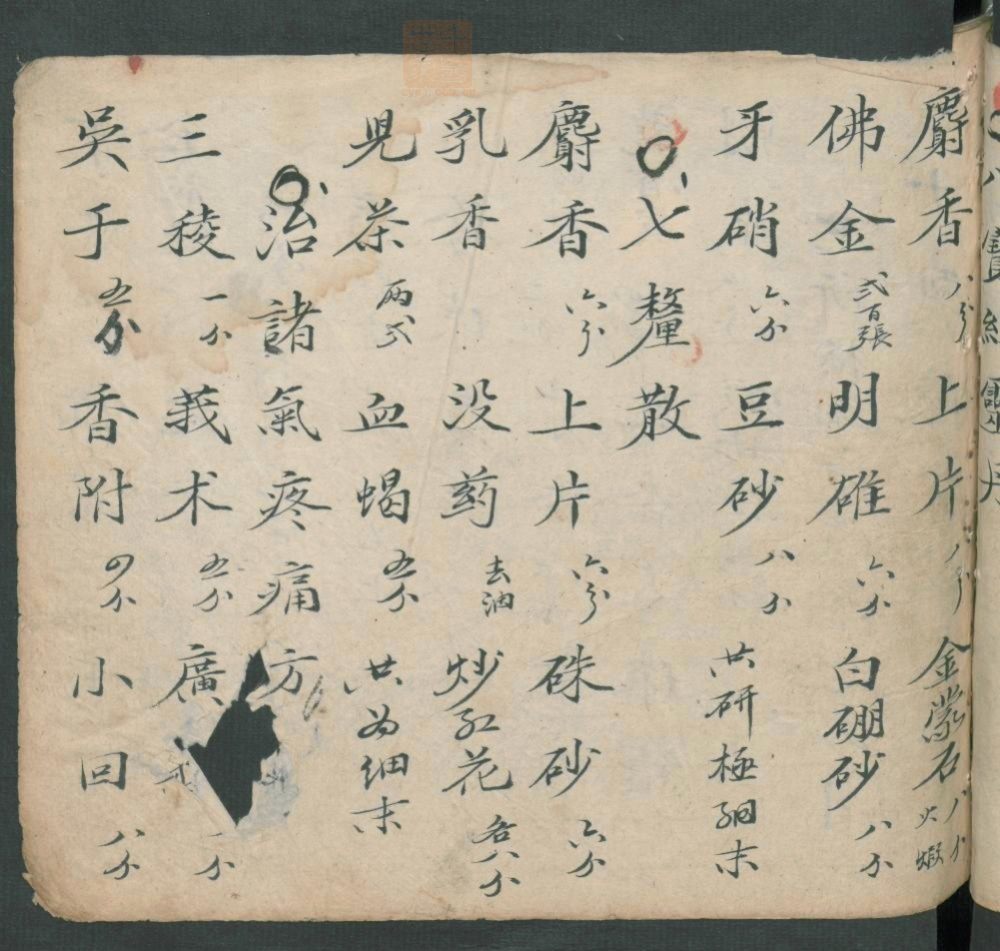 麝香八分上片八分金蒙石八分火煅
佛金弍百張明雄六分白硼砂八分
牙硝六分豆砂八分共研極細末
七釐散
麝香六分上片六分硃砂六分
乳香没药去油炒红花各八分
児茶両弍血蝎五分共为细末
治諸氣疼痛方
三稜一分莪术五分廣
吳于五分香附四分小回八分